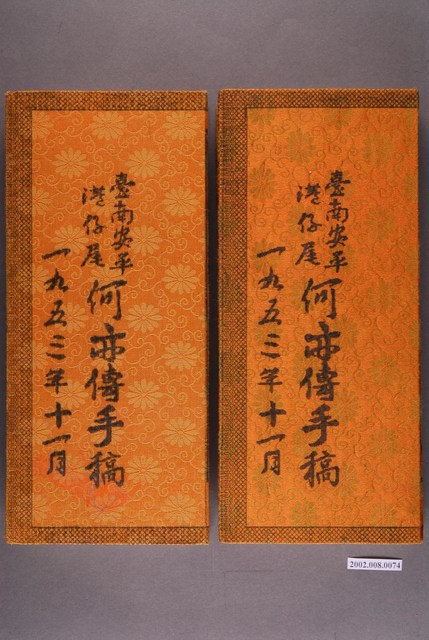 臺南安平
港仔尾
何亦傳手稿
一九五三年十一月
臺南安平
港仔尾
何亦傳手稿
一九五三年十一月
2002.008.0074